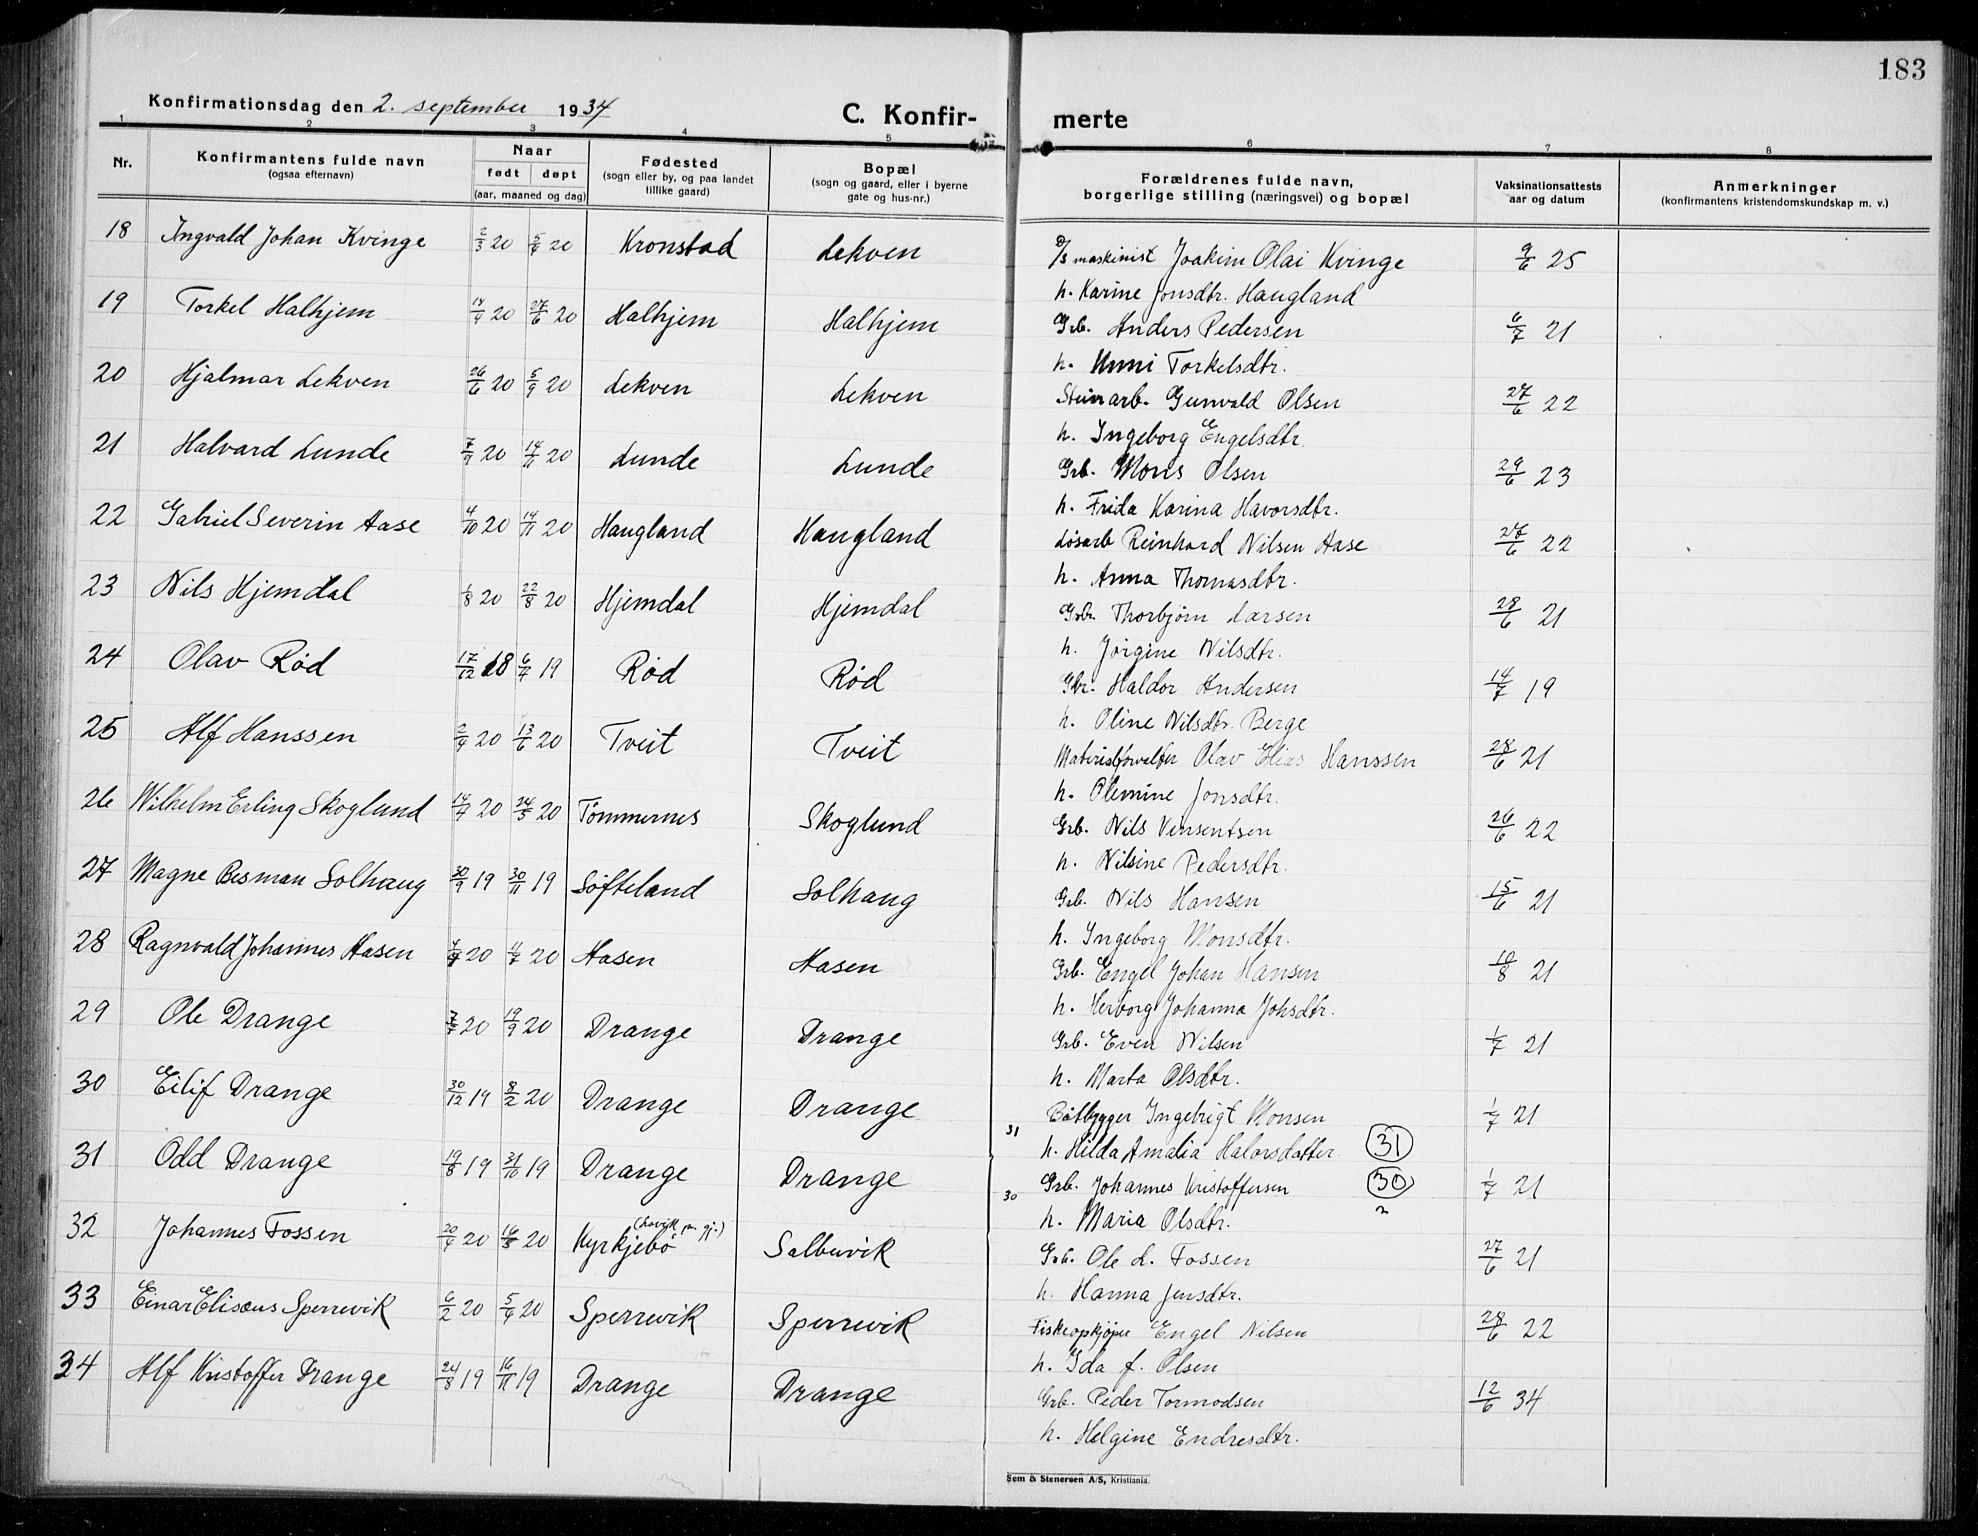 183
Konfirmationsdag den 2. september 1934
C. Konfir- merte
1 2 3 4 5 6 7 8
Nr.
Konfirmantens fulde navn
(ogsaa efternavn)
Naar
født døpt
(aar, maaned og dag)
Fødested
(sogn eller by, og paa landet
tillike gaard)
Bopæl
(sogn og gaard, eller i byerne
gate og hus-nr.)
Forældrenes fulde navn,
borgerlige stilling (næringsvei) og bopæl
Vaksinationsattests
aar og datum
Anmerkninger
(konfirmantens kristendomskundskap m. v.)
18 Ingvald Johan Kvinge 2/3 20 5/4 20 Kronstad Lekven D/S maskinist Joakim Olai Kvinge 9/6 25
h. Karine Jonsdtr. Haugland
19 Torkel Halhjem 14/4 20 27/6 20 Halhjem Halhjem Grb. Anders Pedersen 6/7 21
h. Unni Torkelsdtr.
20 Hjalmar Lekven 26/6 20 5/9 20 Lekven Lekven Steinarb. Gunvald Olsen 27/6 22
h. Ingeborg Engelsdtr.
21 Halvard Lunde 7/9 20 14/11 20 Lunde Lunde Grb. Mons Olsen 29/6 23
h. Frida Karina Havorsdtr.
22 Gabriel Severin Aase 4/10 20 14/11 20 Haugland Haugland Løsarb Reinhard Nilsen Aase 27/6 22
h. Anna Thomasdtr.
23 Nils Hjemdal 1/8 20 22/8 20 Hjemdal Hjemdal Grbr. Thorbjørn Larsen 28/6 21
h. Jørgine Nilsdtr.
24 Olav Rød 17/12 18 6/4 19 Rød Rød Gbr. Haldor Andersen 14/7 19
h. Oline Nilsdtr. Berge
25 Alf Hanssen 2/4 20 13/6 20 Tveit Tveit Materialforvalter Olav Elias Hanssen 28/6 21
h. Olemine Jonsdtr.
26 Wilhelm Erling Skoglund 14/4 20 24/5 20 Tømmernes Skoglund Grb. Nils Vinsentsen 26/6 22
h. Nilsine Pedersdtr.
27 Magne Besman Solhaug 30/9 19 30/11 19 Søfteland Solhaug Grb. Nils Hansen 15/6 21
h. Ingeborg Monsdtr.
28 Ragnvald Johannes Aasen 4/4 20 4/7 20 Aasen Aasen Grb. Engel Johan Hansen 10/8 21
h. Herborg Johanna Johsdtr.
29 Ole Drange 7/7 20 19/9 20 Drange Drange Grb. Even Nilsen 1/7 21
h. Marta Olsdtr.
30 Eilif Drange 30/12 19 8/2 20 Drange Drange Båtbygger Ingebrigt Monsen 1/7 21
31 h. Hilda Amalia Halorsdatter 31
31 Odd Drange 19/8 19 31/10 19 Drange Drange 30 Grb. Johannes Kristoffersen 30 1/7 21
h. Maria Olsdtr.
32 Johannes Fossen 20/4 20 16/5 20 Kyrkjebø (Lavik p. gj.) Salbuvik Grb. Ole L. Fossen 27/6 21
h. Hanna Jensdtr.
33 Einar Elisæus Sperrevik 6/2 20 5/4 20 Sperrevik Sperrevik Fiskeopkjøper Engel Nilsen 28/6 22
h. Ida f. Olsen
34 Alf Kristoffer Drange 24/8 19 16/11 19 Drange Drange Grb. Peder Tormodsen 12/6 34
h. Helgine Endresdtr.
Sem & Stenersen A/S, Kristiania.